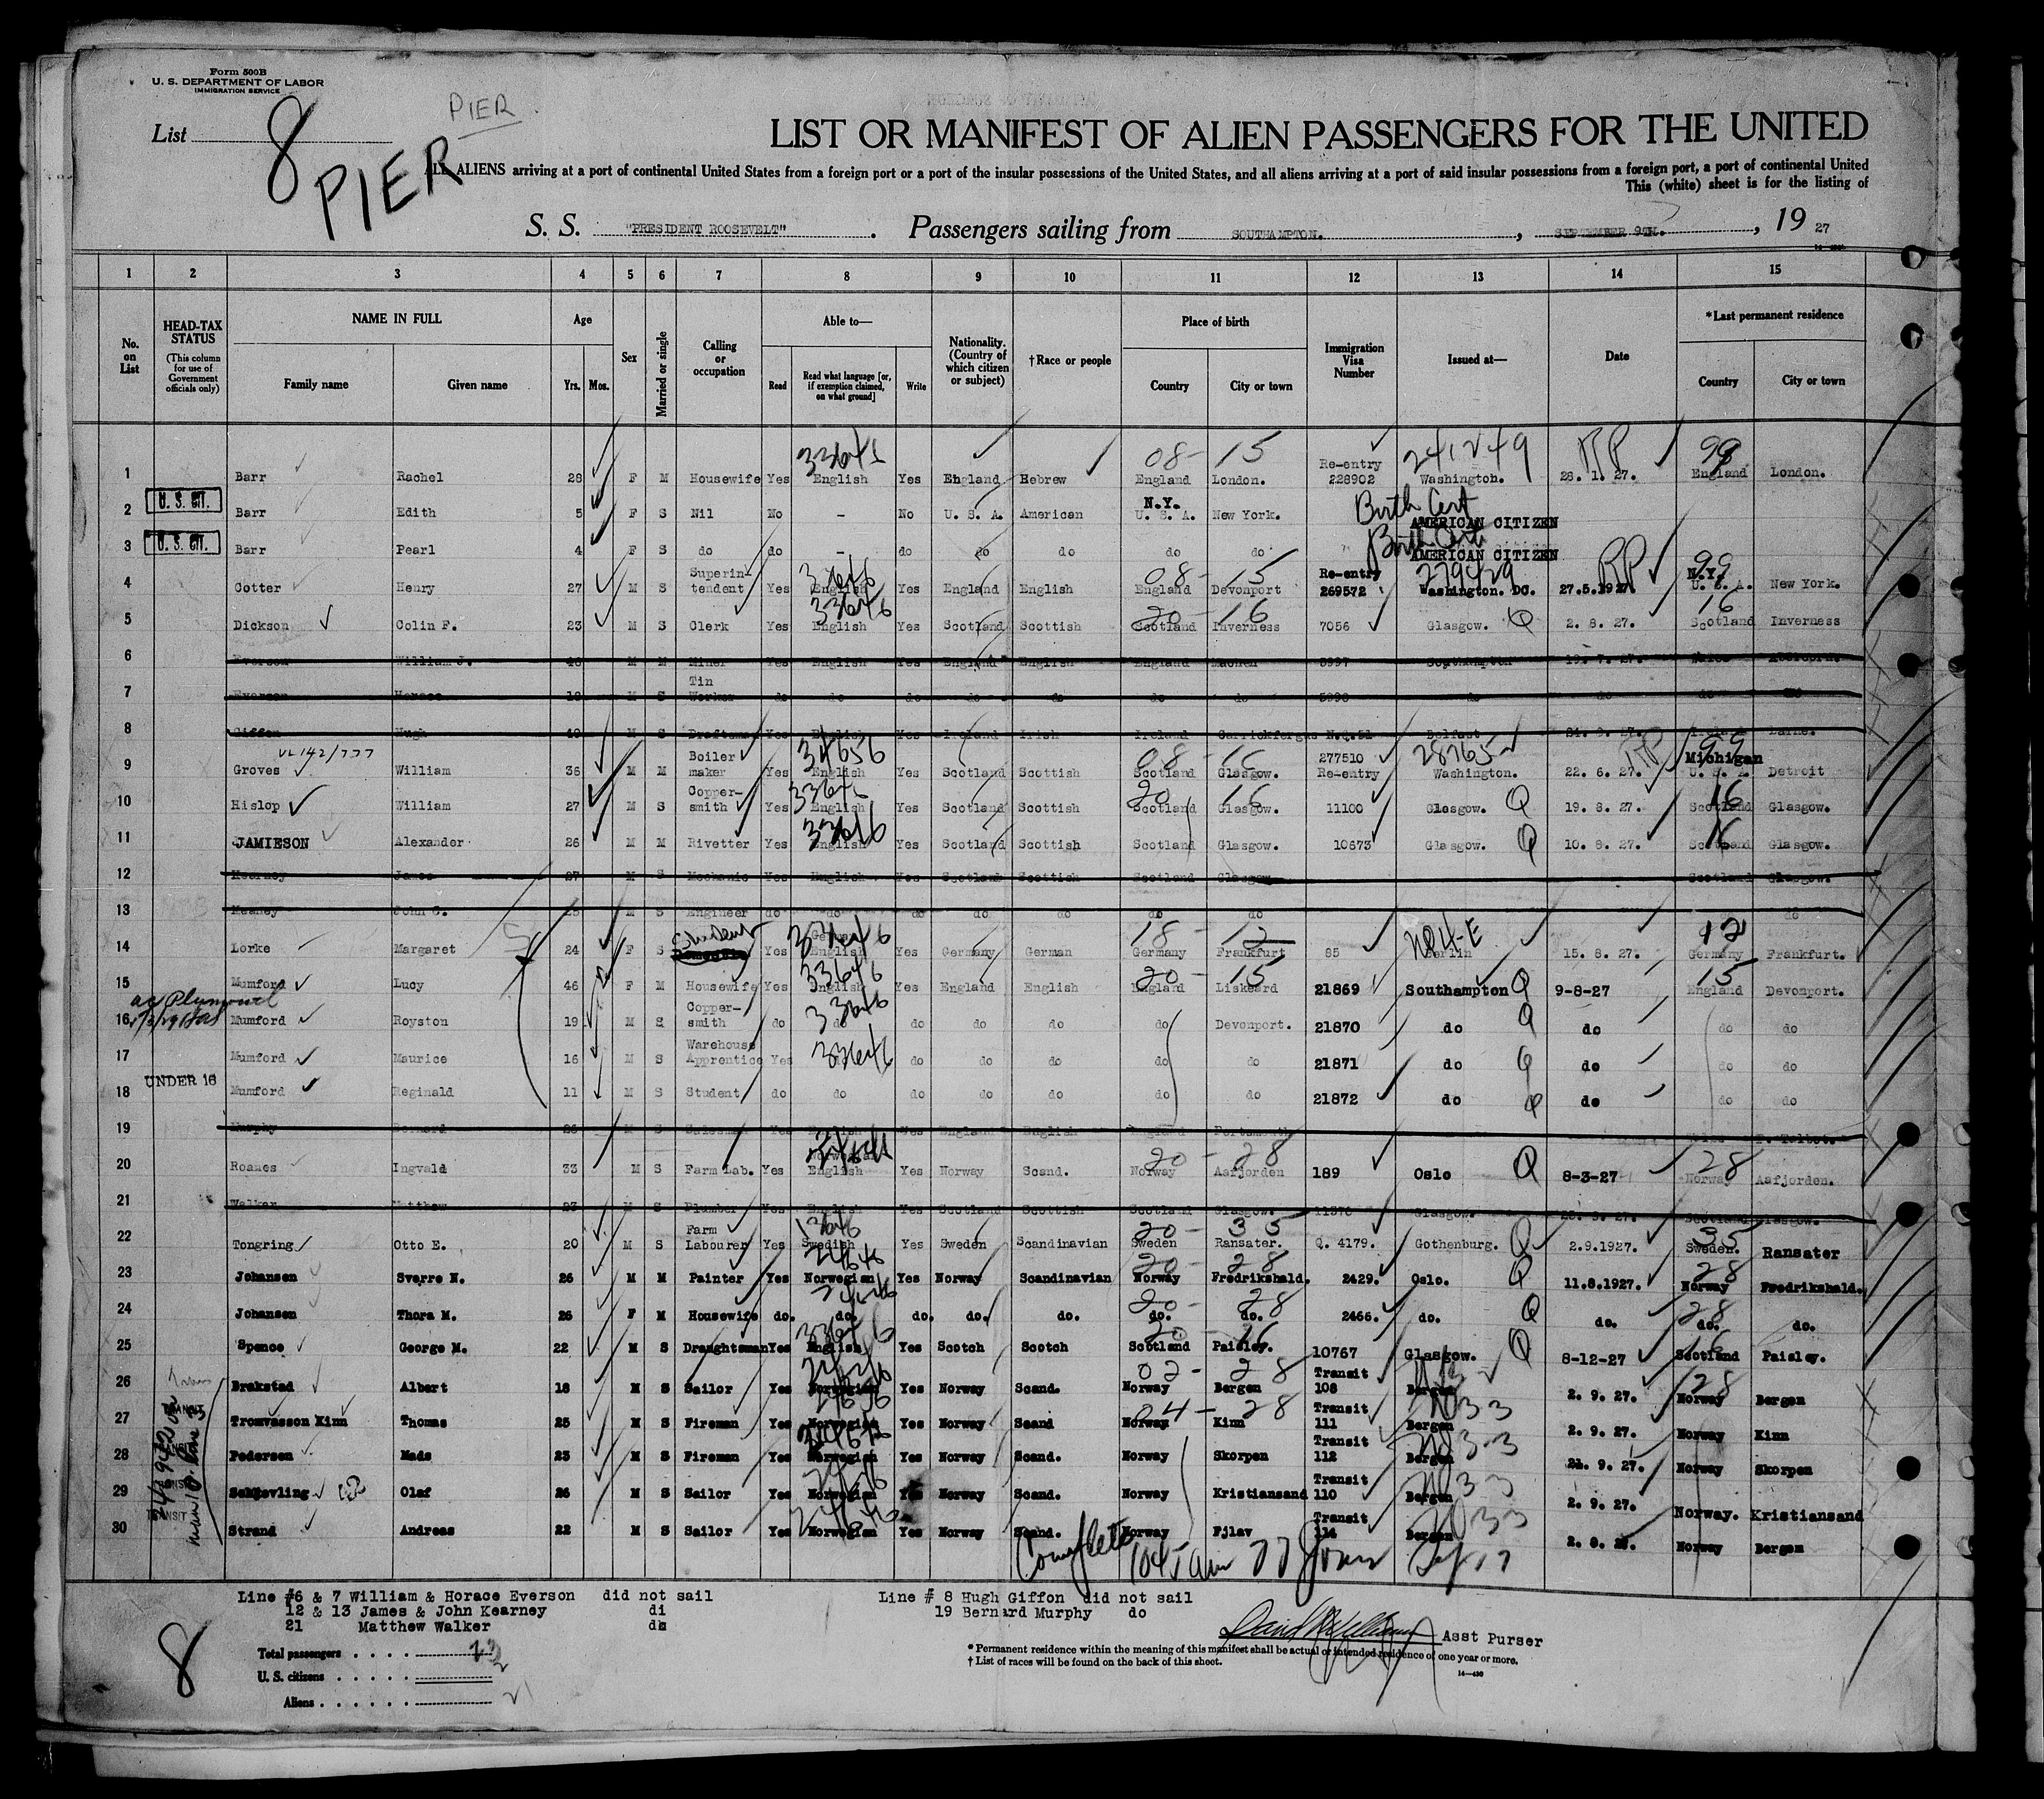 Form 500B
U. S. DEPARTMENT OF LABOR
IMMIGRATION SERVICE
List 8
PIER
PIER
LIST OR MANIFEST OF ALIEN PASSENGERS FOR THE UNITED
ALL ALIENS arriving at a port of continental United States from a foreign port or a port of the insular possessions of the United States, and all aliens arriving at a port of said insular possessions from a foreign port, a port of continental United
This (white) sheet is for the listing of
S. S. "PRESIDENT ROOSEVELT" . Passengers sailing from SOUTHAMPTON. , SEPTEMBER 9TH. , 19 27
1 2 3 4 5 6 7 8 9 10 11 12 13 14 15
No. on List
HEAD-TAX STATUS (This column for use of Government officials only)
NAME IN FULL Family name Given name
Age Yrs. Mos.
Sex
Married or single
Calling or occupation
Able to— Read Read what language [or, if exemption claimed, on what ground] Write
Nationality. (Country of which citizen or subject)
†Race or people
Place of birth Country City or town
Immigration Visa Number
Issued at—
Date
*Last permanent residence Country City or town
1 Barr Rachel 28 F M Housewife Yes English Yes England Hebrew 08- 15 England London. Re-entry 228902 241249 Washington. 28. 1. 27. 99 England London.
2 U. S. CIT. Barr Edith 5 F S Nil No - No U. S. A. American N.Y. U. S. A. New York. Birth Cert AMERICAN CITIZEN
3 U. S. CIT. Barr Pearl 4 F S do do - do do do do do Birth Cert AMERICAN CITIZEN
4 Cotter Henry 27 M S Superin- tendent Yes English Yes England English 08- 15 England Devonport Re-entry 269572 279429 Washington. DC. 27.5.1927. 99 N.Y. U. S. A. New York.
5 Dickson Colin F. 23 M S Clerk Yes English Yes Scotland Scottish 20- 16 Scotland Inverness 7056 Glasgow. Q 2. 8. 27. 16 Scotland Inverness
6 Everson William J. M M Miner Yes English Yes England English England Machen 5997 Southampton 19. 7. 27. Wales
7 Everson Horace M S Tin Worker do do do do do do do 5998 do do do
8 Giffon Hugh M S Draftsman Yes English Yes Ireland Irish Ireland Carrickfergus Belfast Ireland Larne.
9 Groves William 36 M M Boiler maker Yes 34656 English Yes Scotland Scottish Scotland Glasgow. 277510 Re-entry Washington. 22. 6. 27. 99 Michigan U. S. A. Detroit
10 Hislop William 27 M S Copper- smith Yes English Yes Scotland Scottish 20 16 Scotland Glasgow. 11100 Glasgow. Q 19. 8. 27. 16 Scotland Glasgow.
11 JAMIESON Alexander 26 M M Rivetter Yes English Yes Scotland Scottish Scotland Glasgow. 10673 Glasgow. Q 10. 8. 27. 16 Scotland Glasgow.
12 Kearney James 27 M S Mechanic Yes English Yes Scotland Scottish Scotland Glasgow Scotland Glasgow.
13 John 25 M S Engineer do do do do do do do do
14 Lorke Margaret 24 F S Student Yes German English Yes Germany German 18- 12 Germany Frankfurt 85 Berlin 15. 8. 27. 12 Germany Frankfurt.
15 Mumford Lucy 46 F M Housewife Yes 33646 English Yes England English 20- 15 England Liskeard 21869 Southampton Q 9-8-27 15 England Devonport.
16 Mumford Royston 19 M S Copper- smith do 33646 do do do do do Devonport. 21870 do Q do do do
17 Mumford Maurice 16 M S Warehouse Apprentice Yes 33646 do do do do do 21871 do Q do do do
UNDER 16
18 Mumford Reginald 11 M S Student do do do do do do do 21872 do Q do do do
19 Murphy Bernard 26 M S Salesman Yes English Yes England English England Portsmouth
20 Roanes Ingvald 33 M S Farm Lab. Yes Norwegian English Yes Norway Scand. 20- 28 Norway Aafjorden 189 Oslo Q 8-3-27 28 Norway Aafjorden.
21 Walker Matthew 23 M S Plumber Yes English Yes Scotland Scottish Scotland Glasgow. Glasgow. Scotland Glasgow.
22 Tongring Otto E. 20 M S Farm Labourer Yes Swedish Yes Sweden Scandinavian 20- 35 Sweden Ransater. Q. 4179. Gothenburg. Q 2.9.1927. 35 Sweden. Ransater
23 Johansen Sverre N. 26 M M Painter Yes Norwegian Yes Norway Scandinavian 20- 28 Norway Fredrikshald. 2429. Oslo. Q 11.8.1927. 28 Norway Fredrikshald.
24 Johansen Thora M. 26 F M Housewife do. do. do. do. do. 20- 28 do. do. 2466. do. Q do. 28 do. do.
25 Spence George M. 22 M S Draughtsman Yes English Yes Scotch Scotch 20- 16 Scotland Paisley. 10767 Glasgow. Q 8-12-27 16 Scotland Paisley.
26 Brakstad Albert 18 M S Sailor Yes Norwegian Yes Norway Scand. 02- 28 Norway Bergen Transit 108 Bergen 2. 9. 27. 28 Norway Bergen
27 Tromvasson Kinn Thomas 25 M S Fireman Yes Norwegian Yes Norway Scand 04- 28 Norway Kinn Transit 111 Bergen 2. 9. 27. Norway Kinn
28 Pedersen Mads 23 M S Fireman Yes Norwegian Yes Norway Scand. Norway Skorpen Transit 112 Bergen 9. 27. Norway Skorpen
29 Olaf 26 M S Sailor Yes Norwegian Yes Norway Scand. Norway Kristiansand Transit 110 Bergen 2. 9. 27. Norway. Kristiansand
30 Strand Andreas 22 M S Sailor Yes Norwegian Yes Norway Scand. Norway Fjlav Transit 114 Bergen Norway Bergen
Complete 1045 am
Line #6 & 7 William & Horace Everson did not sail
Line # 8 Hugh Giffon did not sail
12 & 13 James & John Kearney di
19 Bernard Murphy do
21 Matthew Walker do
Asst Purser
8
Total passengers
U. S. citizens
Aliens 21
* Permanent residence within the meaning of this manifest shall be actual or intended residence of one year or more.
† List of races will be found on the back of this sheet.
14—430